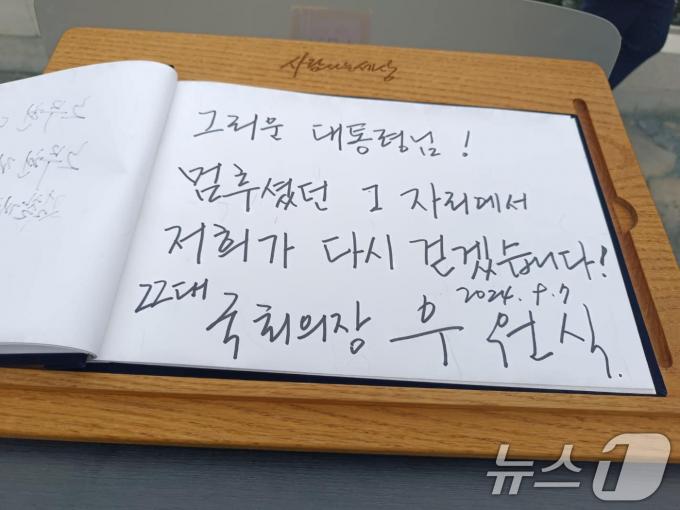 사람사는세상
그리운 대통령님!
멈추셨던 그 자리에서
저희가 다시 걷겠습니다!
2024. 9. 7
22대 국회의장 우원식.
뉴스1